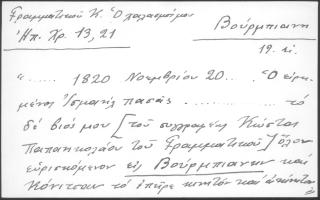 Γραμματικοῦ Κ. Ὁ χαλασμὸς
Ἠπ. Χρ. 13, 21
Βούρμπιανη
19. αἰ.
«...... 1820 Νοεμβρίου 20... Ὁ εἰρη-
μένος Ἰσμαήλ πασᾶς ............ τὸ
δὲ βιό μου [τοῦ συγγραφέως Κώστα
Παπανικολάου τοῦ Γραμματικοῦ] ὅλον
εὑρισκόμενον εἰς Βούρμπιανην καὶ
Κόνιτσαν τὸ ἐπῆρε κινητόν καὶ ἀκίνητον